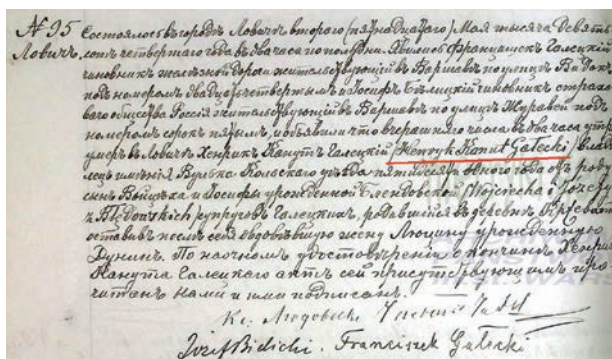 № 95 Состоялось въ городѣ Ловичѣ второго (пятнадцатаго) Мая тысяча девять
Ловичъ. сотъ четвертаго года въ два часа по полудни. Явились Францишекъ Галецкій
чиновникъ желѣзной дороги жительствующій въ Варшавѣ по улицѣ Видокъ
подъ номеромъ двадцать четвертымъ и Іосифъ Бѣлицкій чиновникъ страхо
ваго общества Россія жительствующій въ Варшавѣ по улицѣ Журавей подъ
номеромъ сорокъ пятымъ, и объявили что вчерашняго числа въ два часа утра
умеръ въ Ловичѣ Хенрикъ Канутъ Галецкій /Henryk Kanut Gałecki/ владѣ
лецъ имѣнія Вулька Кольскаго уѣзда пятидесяти одного года отъ роду
сынъ Войцѣха и Іосифы урожденной Блендовской /Wojciecha i Józefy
z Błędowskich супруговъ Галецкихъ, родившійся въ деревнѣ
оставивъ послѣ себя овдовѣвшую жену Люцину урожденную
Дунинъ. По наочномъ удостовѣреніи о кончинѣ Хенрика
Канута Галецкаго актъ сей присутствующимъ про
читанъ нами и ими подписанъ.
Кс. Людовикъ
Józef Bielicki. Franciszek Gałecki